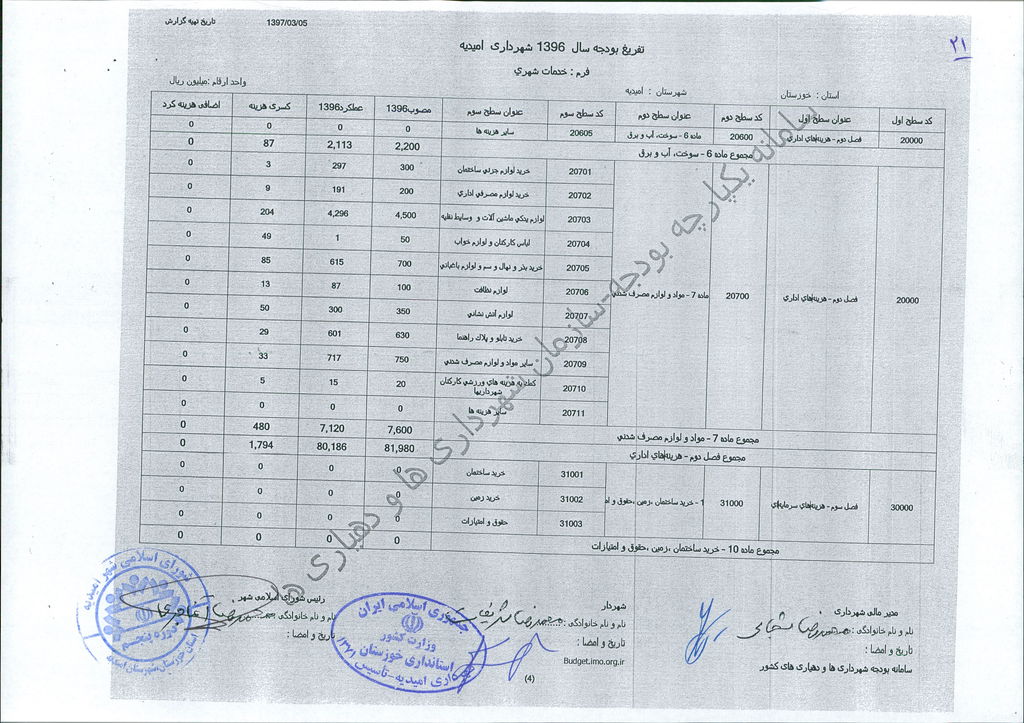 ۲۱
1397/03/05 تاریخ تهیه گزارش
تفریغ بودجه سال 1396 شهرداری امیدیه
فرم : خدمات شهري
استان : خوزستان شهرستان : امیدیه واحد ارقام :میلیون ریال
کد سطح اول عنوان سطح اول کد سطح دوم عنوان سطح دوم کد سطح سوم عنوان سطح سوم مصوب1396 عملکرد1396 کسری هزینه اضافی هزینه کرد
20000 فصل دوم - هزینه‌های اداري 20600 ماده 6 - سوخت، آب و برق 20605 سایر هزینه ها 0 0 0 0
مجموع ماده 6 - سوخت، آب و برق 2,200 2,113 87 0
20000 فصل دوم - هزینه‌های اداري 20700 ماده 7 - مواد و لوازم مصرف شدني
20701 خرید لوازم جزئي ساختمان 300 297 3 0
20702 خرید لوازم مصرفي اداري 200 191 9 0
20703 لوازم یدکي ماشین آلات و وسایط نقلیه 4,500 4,296 204 0
20704 لباس کارکنان و لوازم خواب 50 1 49 0
20705 خرید بذر و نهال و سم و لوازم باغباني 700 615 85 0
20706 لوازم نظافت 100 87 13 0
20707 لوازم آتش نشاني 350 300 50 0
20708 خرید تابلو و پلاك راهنما 630 601 29 0
20709 سایر مواد و لوازم مصرف شدني 750 717 33 0
20710 کمك به هزینه هاي ورزشي کارکنان شهرداریها 20 15 5 0
20711 سایر هزینه ها 0 0 0 0
مجموع ماده 7 - مواد و لوازم مصرف شدني 7,600 7,120 480 0
مجموع فصل دوم - هزینه‌های اداري 81,980 80,186 1,794 0
30000 فصل سوم - هزینه‌های سرمایه‌اي 31000 1 - خرید ساختمان ،زمین ،حقوق و ام
31001 خرید ساختمان 0 0 0 0
31002 خرید زمین 0 0 0 0
31003 حقوق و امتیازات 0 0 0 0
مجموع ماده 10 - خرید ساختمان ،زمین ،حقوق و امتیازات 0 0 0 0
سامانه یکپارچه بودجه-سازمان شهرداری ها و دهیاری ها
مدیر مالی شهرداری
نام و نام خانوادگی :
تاریخ و امضا :
سامانه بودجه شهرداری ها و دهیاری های کشور
شهردار
نام و نام خانوادگی : محمدرضا شریفی
تاریخ و امضا :
Budget.imo.ir
(4)
رئیس شورای اسلامی شهر
نام و نام خانوادگی :
تاریخ و امضا :
جمهوری اسلامی ایران
وزارت کشور
استانداری خوزستان
شهرداری امیدیه-تأسیس ۱۳۷۱
شورای اسلامی شهر امیدیه
دوره پنجم
استان خوزستان،شهرستان امیدیه